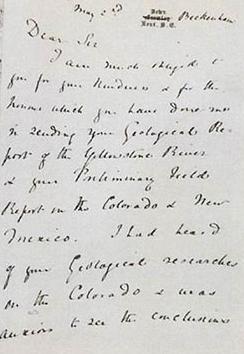 Down,
Beckenham
Kent. S.E.
May 2d
Dear Sir
I am much obliged to
you for your kindness & for the
honour which you have done me
in sending your Geological Re-
port of the Yellowstone River
& your Preliminary Field
Report on the Colorado & New
Mexico. I had heard
of your Geological researches
on the Colorado & was
anxious to see the conclusions